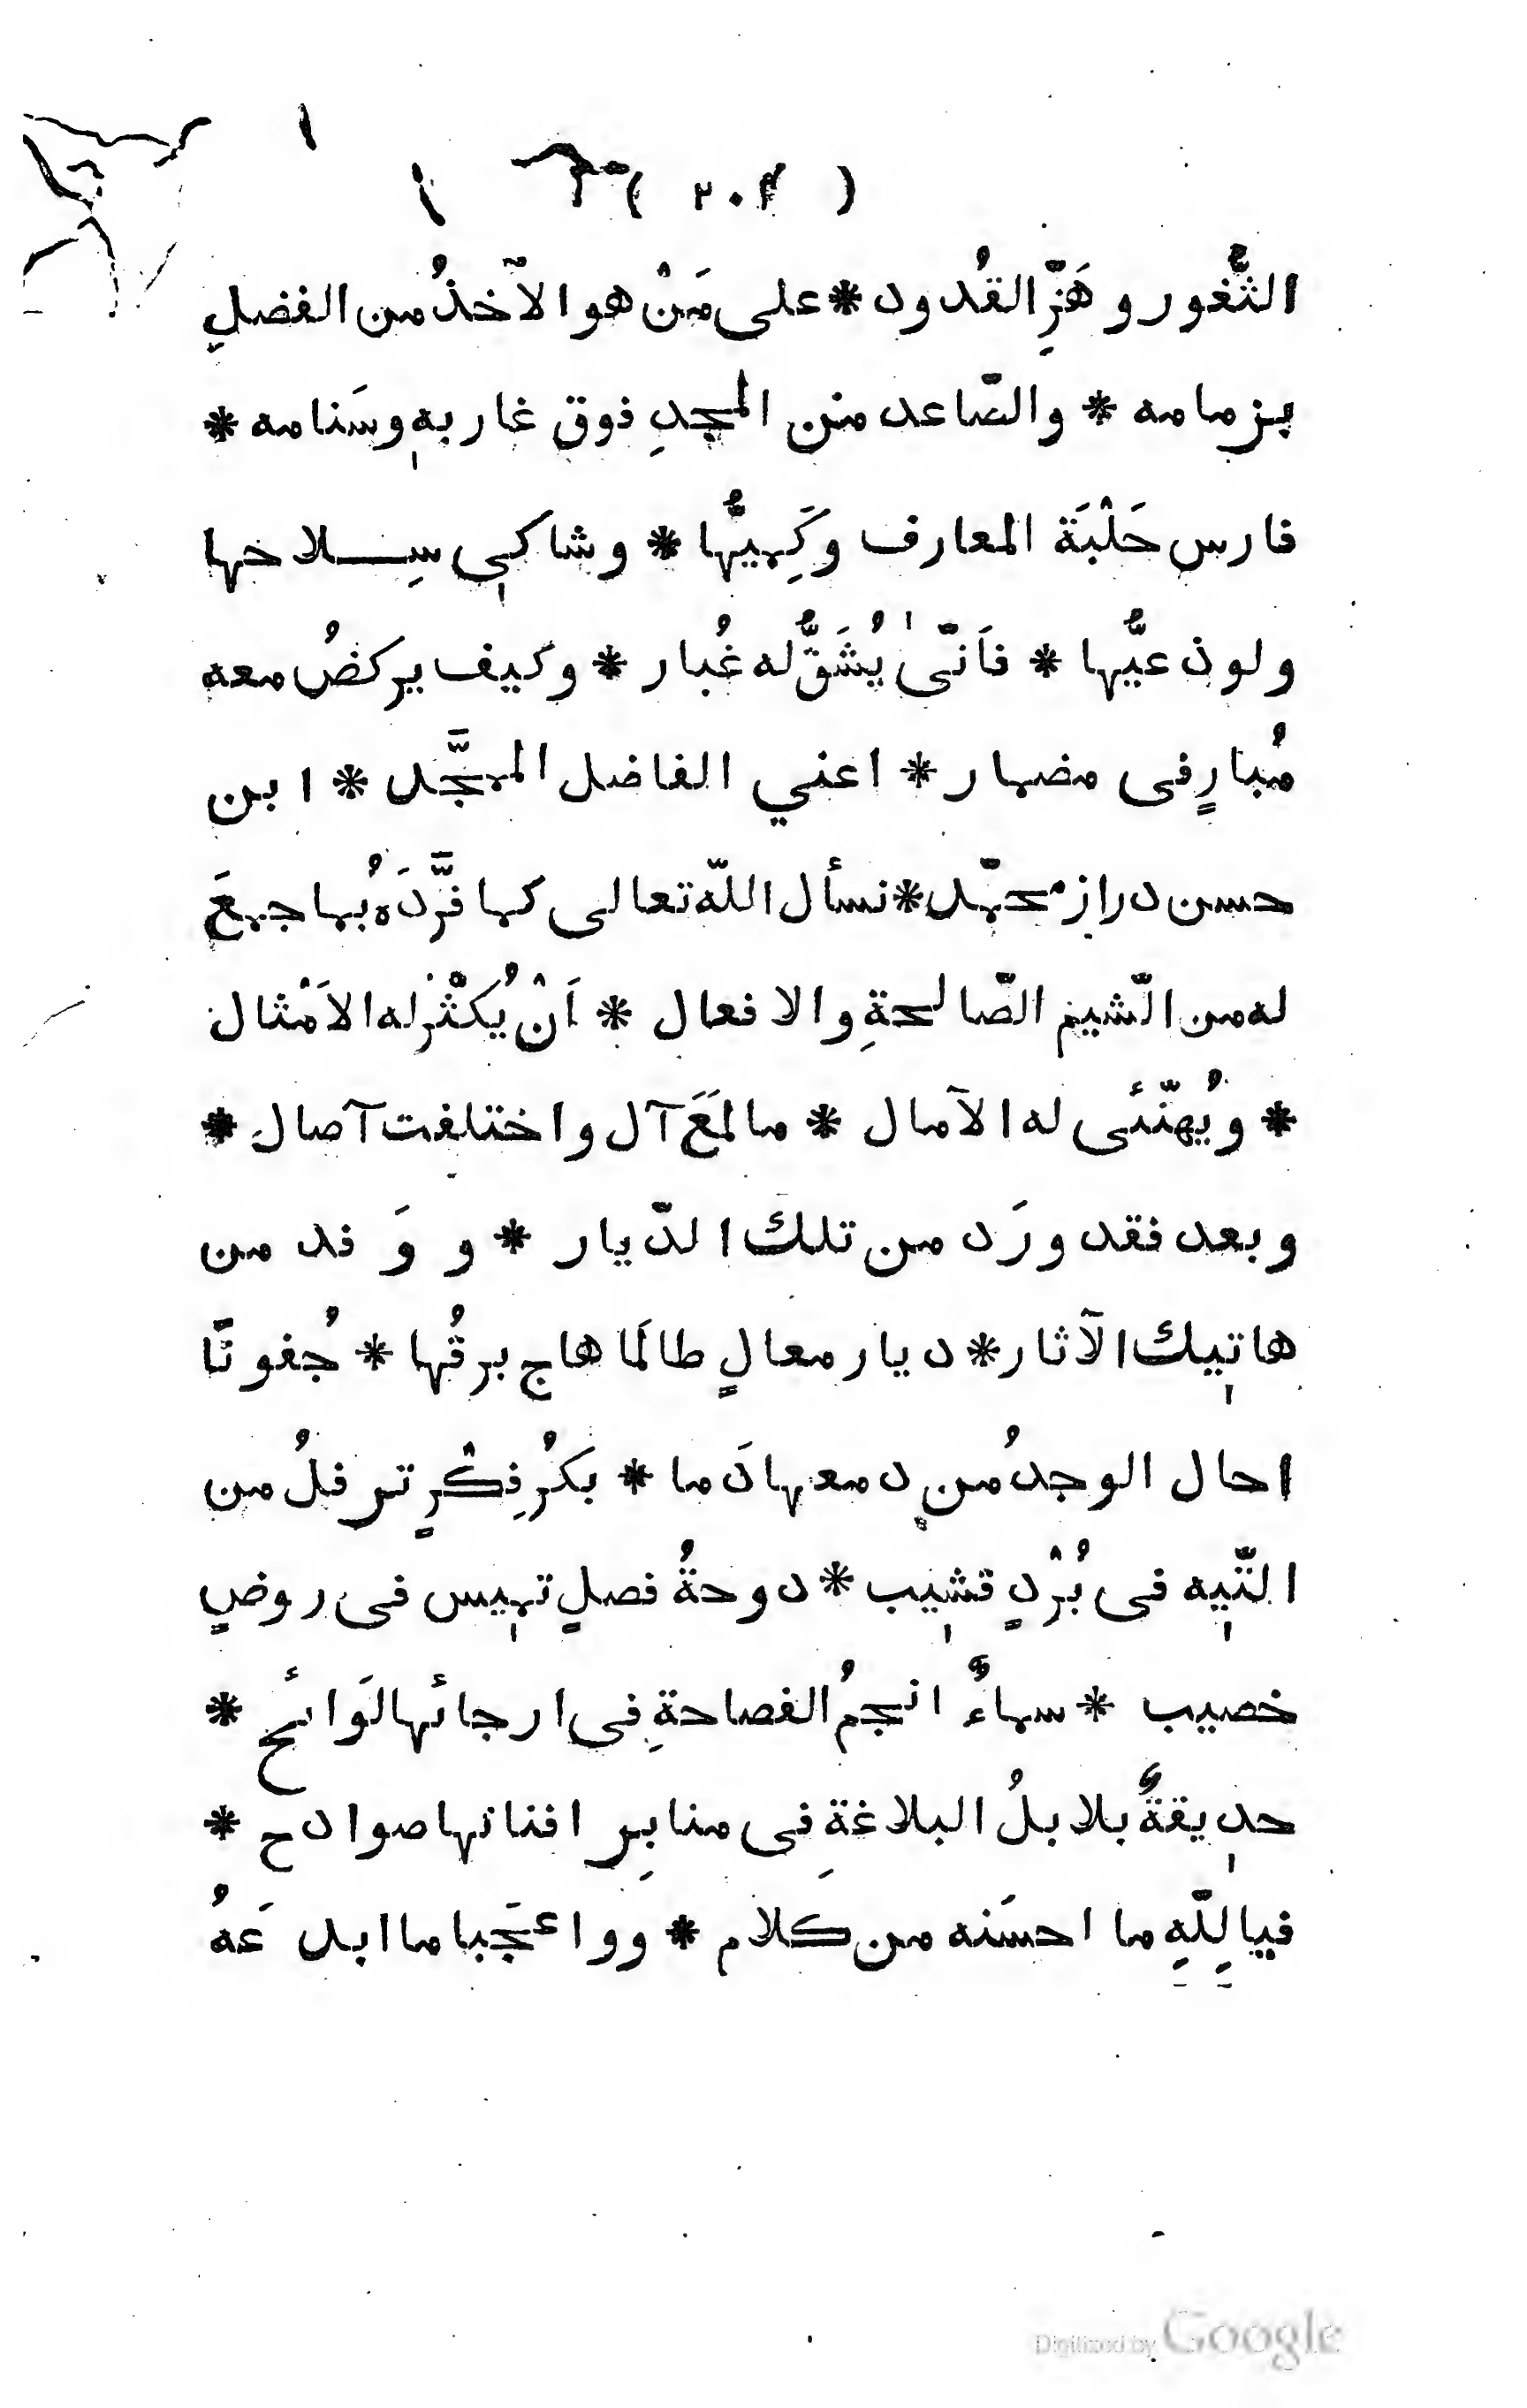 ( ٢٠٤ )
الثُّغور و هَزِّ القُدود * على مَنْ هو الآخذُ من الفضلِ
بزمامه * والصّاعد من المجدِ فوق غاربهٖ وسَنامه *
فارس حَلْبَة المعارف وكَمِيُّها * وشاكي سِـلاحها
ولوذعيُّها * فاَنّىٰ يُشَقُّ له غُبار * وكيف يركضُ معه
مُبارٍ فى مضمار * اعني الفاضل المبجَّل * ابن
حسن دراز محمّد * نسأل اللّه تعالى كما فَرَّدَهُ بما جمعَ
له من الشّيم الصّالحةِ والافعال * اَنْ يُكثّرْ له الاَمْثال
* ويُهنّئى له الآمال * ما لمَعَ آل واختلفت آصال *
وبعد فقد ورَد من تلك الدّيار * و وَفد من
هاتيك الآثار * ديار معالٍ طالمَا هاج برقُها * جُفونًا
احال الوجدُ من دمعها دَما * بكرُ فِكْرٍ ترفلُ من
التّيه فى بُرْدٍ قشيب * دوحةُ فصلٍ تميس فى روضٍ
خصيب * سماءٌ انجمُ الفصاحةِ فى ارجائها لوَائَح *
حديقةٌ بلابلُ البلاغةِ فى منابرِ افنانها صوادح *
فيالِلّهِ ما احسَنه من كلام * وواعجَبا ما ابدعَهُ
Digitized by Google